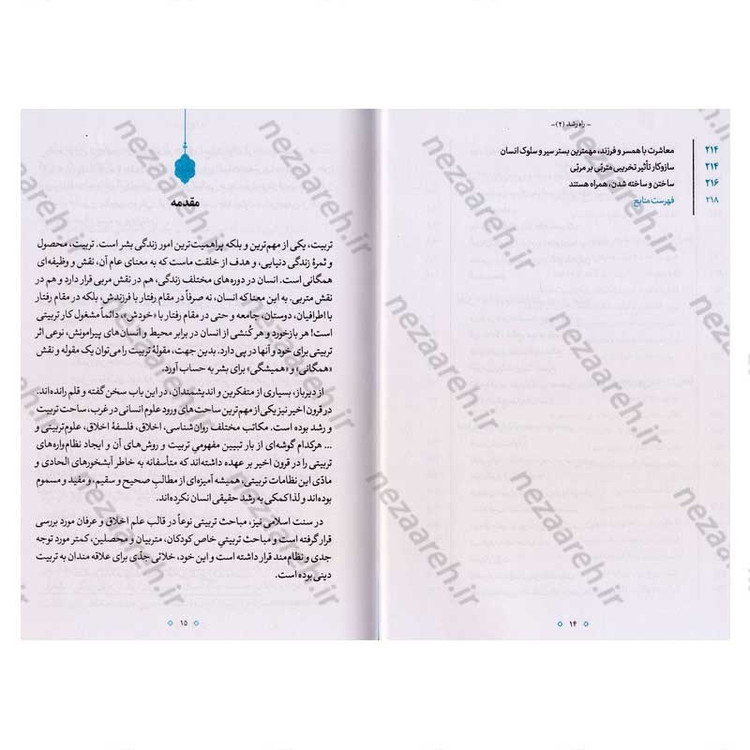 - راه رشد (۲) -
معاشرت با همسر و فرزند، مهمترین بستر سیر و سلوک انسان ۲۱۴
سازوکار تأثیر تخریبی متربّی بر مربّی ۲۱۴
ساختن و ساخته شدن، همراه هستند ۲۱۶
فهرست منابع ۲۱۸
۱۴
مقدمه
تربیت، یکی از مهم‌ترین و بلکه پراهمیت‌ترین امور زندگی بشر است. تربیت، محصول
و ثمرهٔ زندگی دنیایی، و هدف از خلقت ماست که به معنای عام آن، نقش و وظیفه‌ای
همگانی است. انسان در دوره‌های مختلف زندگی، هم در نقش مربی قرار دارد و هم در
نقش متربی. به این معنا که انسان، نه صرفاً در مقام رفتار با فرزندش، بلکه در مقام رفتار
با اطرافیان، دوستان، جامعه و حتی در مقام رفتار با «خودش»، دائماً مشغول کار تربیتی
است! هر بازخورد و هر کُنشی از انسان در برابر محیط و انسان‌های پیرامونش، نوعی اثر
تربیتی برای خود و آنها در پی دارد. بدین جهت، مقولهٔ تربیت را می‌توان یک مقوله و نقش
«همگانی» و «همیشگی» برای بشر به حساب آورد.
از دیرباز، بسیاری از متفکرین و اندیشمندان، در این باب سخن گفته و قلم رانده‌اند.
در قرون اخیر نیز یکی از مهم‌ترین ساحت‌های ورود علوم انسانی در غرب، ساحت تربیت
و رشد بوده است. مکاتب مختلف روان‌شناسی، اخلاق، فلسفهٔ اخلاق، علوم تربیتی و
... هرکدام گوشه‌ای از بار تبیین مفهومیِ تربیت و روش‌های آن و ایجاد نظام‌واره‌های
تربیتی را در قرون اخیر بر عهده داشته‌اند که متأسفانه به خاطر آبشخورهای الحادی و
مادّی این نظامات تربیتی، همیشه آمیزه‌ای از مطالبِ صحیح و سقیم، و مفید و مسموم
بوده‌اند و لذا کمکی به رشد حقیقی انسان نکرده‌اند.
در سنت اسلامی نیز، مباحث تربیتی نوعاً در قالب علم اخلاق و عرفان مورد بررسی
قرار گرفته است و مباحث تربیتیِ خاص کودکان، متربیان و محصلین، کمتر مورد توجه
جدی و نظام‌مند قرار داشته است و این خود، خلائی جدّی برای علاقه مندان به تربیت
دینی بوده است.
۱۵
nezaareh.ir
nezaareh.ir
nezaareh.ir
nezaareh.ir
nezaareh.ir
nezaareh.ir